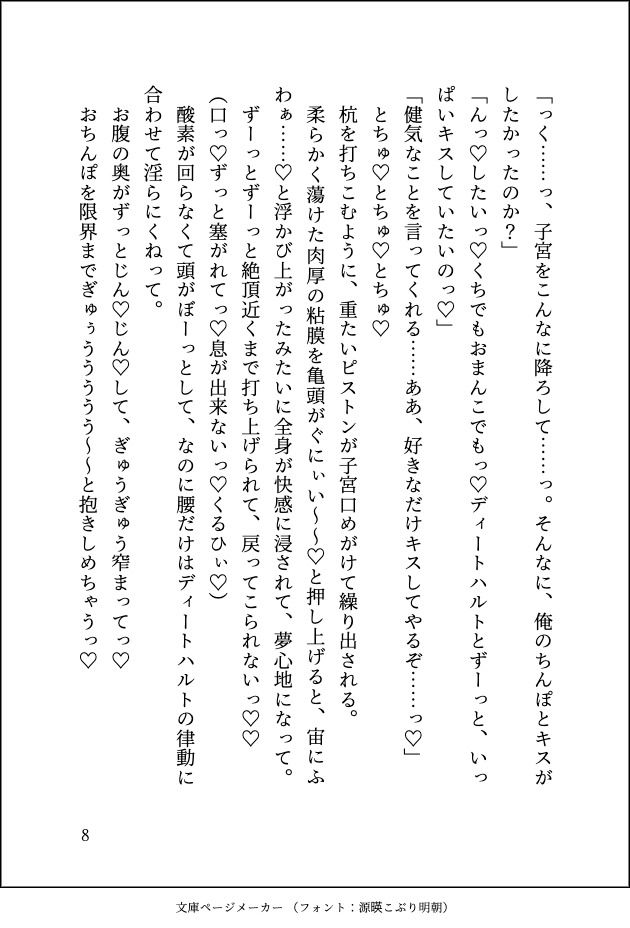 「っく……っ、子宮をこんなに降ろして……っ。そんなに、俺のちんぽとキスが
したかったのか？」
「んっ♡したいっ♡くちでもおまんこでもっ♡ディートハルトとずーっと、いっ
ぱいキスしていたいのっ♡」
「健気なことを言ってくれる……ああ、好きなだけキスしてやるぞ……っ♡」
とちゅ♡とちゅ♡とちゅ♡
杭を打ちこむように、重たいピストンが子宮口めがけて繰り出される。
柔らかく蕩けた肉厚の粘膜を亀頭がぐにぃい～～♡と押し上げると、宙にふ
わぁ……♡と浮かび上がったみたいに全身が快感に浸されて、夢心地になって。
ずーっとずーっと絶頂近くまで打ち上げられて、戻ってこられないっ♡♡
（口っ♡ずっと塞がれてっ♡息が出来ないっ♡くるひぃ♡）
酸素が回らなくて頭がぼーっとして、なのに腰だけはディートハルトの律動に
合わせて淫らにくねって。
お腹の奥がずっとじん♡じん♡して、ぎゅうぎゅう窄まってっ♡
おちんぽを限界までぎゅぅうううう～～と抱きしめちゃうっ♡
8
文庫ページメーカー（フォント：源暎こぶり明朝）